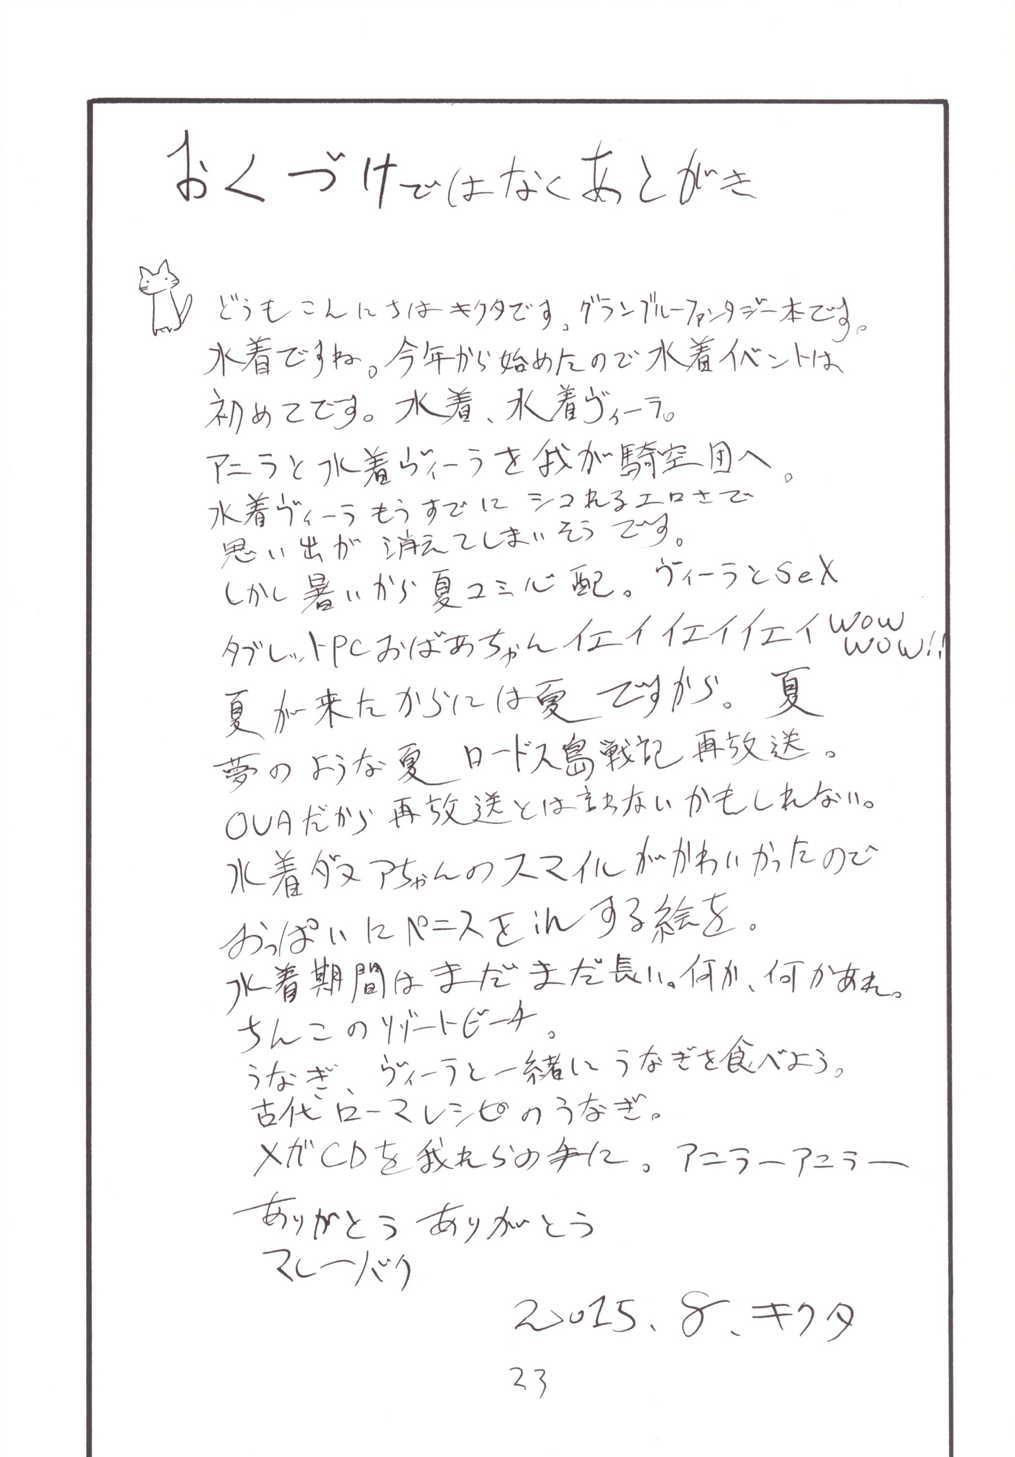 おくづけではなくあとがき
どうもこんにちはキクタです。グランブルーファンタジー本です。
水着ですね。今年から始めたので水着イベントは
初めてです。水着、水着ヴィーラ。
アニラと水着ヴィーラを我が騎空団へ。
水着ヴィーラもうすでにシコれるエロさで
思い出が消えてしまいそうです。
しかし暑いから夏コミ心配。ヴィーラとSeX
タブレットPCおばあちゃんイエイイエイイエイWOW
WOW!!
夏が来たからには夏ですから。夏
夢のような夏 ロードス島戦記再放送。
OVAだから再放送とは言わないかもしれない。
水着ダヌアちゃんのスマイルがかわいかったので
おっぱいにペニスをinする絵を。
水着期間はまだまだ長い。何か、何かあれ。
ちんこのリゾートビーチ。
うなぎ、ヴィーラと一緒にうなぎを食べよう。
古代ローマレシピのうなぎ。
メガCDを我れらの手に。アニラーアニラー
ありがとうありがとう
マレーバク
2015、8、キクタ
23